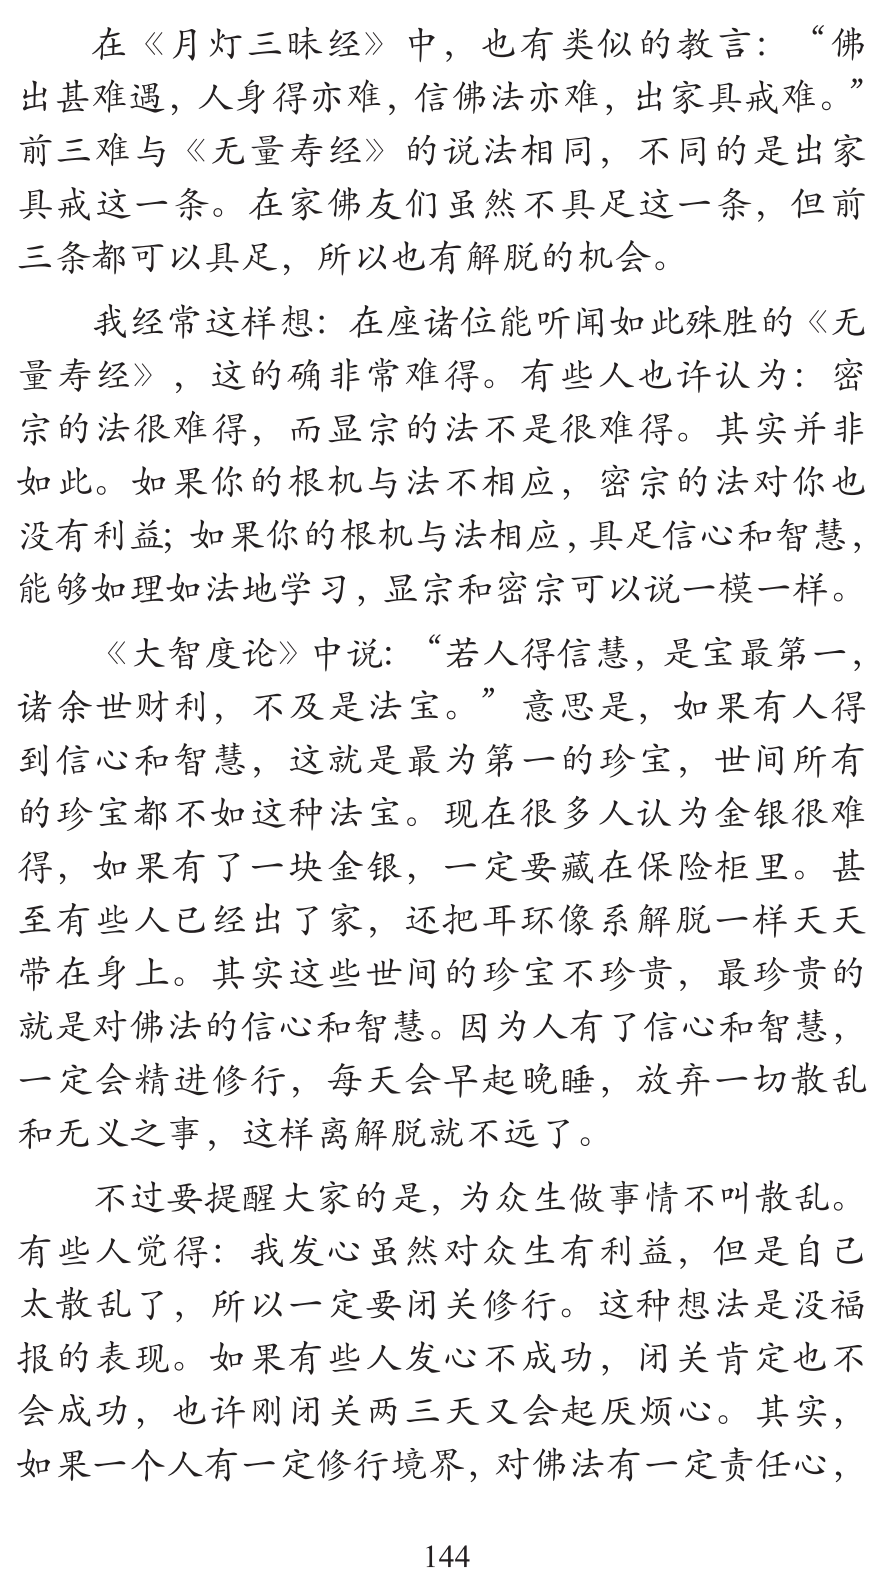 在《月灯三昧经》中，也有类似的教言：“佛
出甚难遇，人身得亦难，信佛法亦难，出家具戒难。”
前三难与《无量寿经》的说法相同，不同的是出家
具戒这一条。在家佛友们虽然不具足这一条，但前
三条都可以具足，所以也有解脱的机会。
我经常这样想：在座诸位能听闻如此殊胜的《无
量寿经》，这的确非常难得。有些人也许认为：密
宗的法很难得，而显宗的法不是很难得。其实并非
如此。如果你的根机与法不相应，密宗的法对你也
没有利益；如果你的根机与法相应，具足信心和智慧，
能够如理如法地学习，显宗和密宗可以说一模一样。
《大智度论》中说：“若人得信慧，是宝最第一，
诸余世财利，不及是法宝。”意思是，如果有人得
到信心和智慧，这就是最为第一的珍宝，世间所有
的珍宝都不如这种法宝。现在很多人认为金银很难
得，如果有了一块金银，一定要藏在保险柜里。甚
至有些人已经出了家，还把耳环像系解脱一样天天
带在身上。其实这些世间的珍宝不珍贵，最珍贵的
就是对佛法的信心和智慧。因为人有了信心和智慧，
一定会精进修行，每天会早起晚睡，放弃一切散乱
和无义之事，这样离解脱就不远了。
不过要提醒大家的是，为众生做事情不叫散乱。
有些人觉得：我发心虽然对众生有利益，但是自己
太散乱了，所以一定要闭关修行。这种想法是没福
报的表现。如果有些人发心不成功，闭关肯定也不
会成功，也许刚闭关两三天又会起厌烦心。其实，
如果一个人有一定修行境界，对佛法有一定责任心，
144